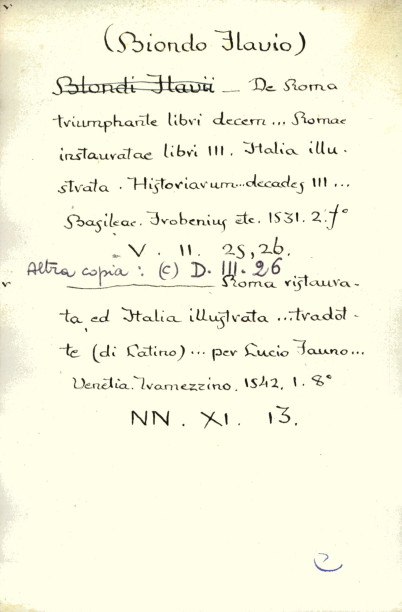 (Biondo Flavio)
Blondi Flavii — De Roma
triumphante libri decem ... Romae
instauratae libri III. Italia illu-
strata. Historiarum...decades III ...
Basileae. Frobenius etc. 1531. 2. f°
V. II. 25, 26.
Altra copia: (c) D. III. 26
——— Roma ristaura-
ta, ed Italia illustrata ... tradot-
te (di Latino) ... per Lucio Fauno...
Venetia. Tramezzino. 1542. 1. 8°
NN. XI. 13.